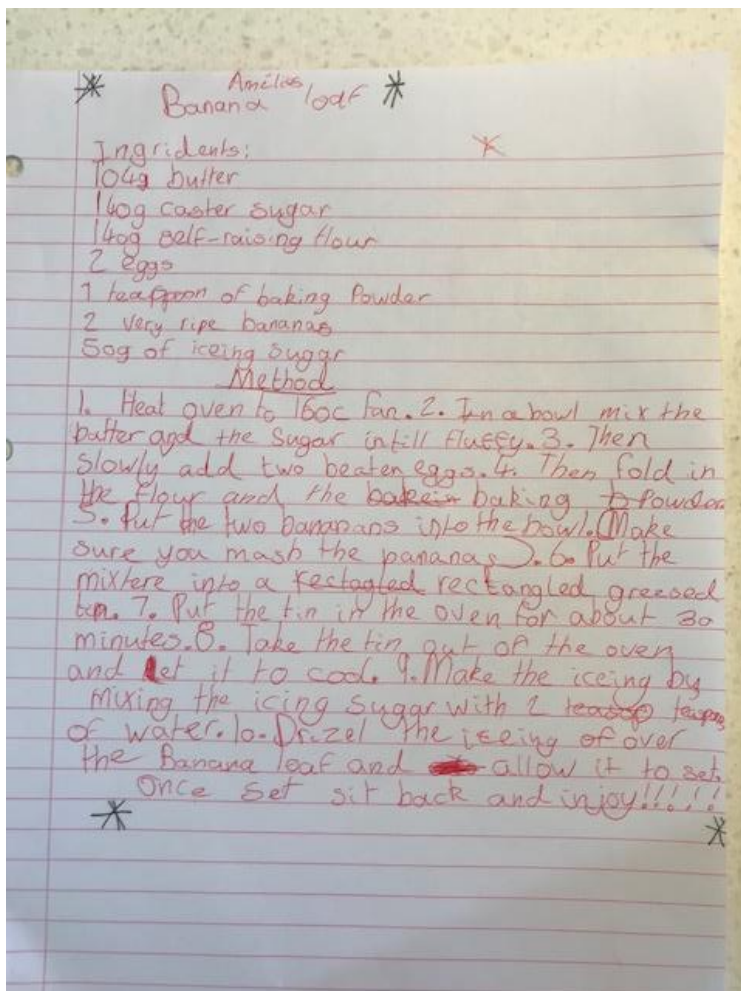 Amelias
Banana loaf
Ingridents:
104g butter
140g caster sugar
140g self-raising flour
2 eggs
1 teaspoon of baking Powder
2 very ripe bananas
50g of iceing sugar
Method
1. Heat oven to 160c fan. 2. In a bowl mix the
butter and the sugar intill fluffy. 3. Then
slowly add two beaten eggs. 4. Then fold in
the flour and the baking Powder.
5. Put the two bananans into the bowl. (Make
sure you mash the pananas). 6. Put the
mixtere into a rectangled greesed
tin. 7. Put the tin in the oven for about 30
minutes. 8. Take the tin out of the oven
and let it to cool. 9. Make the iceing by
mixing the icing sugar with 2
of water. 10. Drizel the iceing of over
the Banana loaf and allow it to set.
Once set sit back and injoy!!!!!